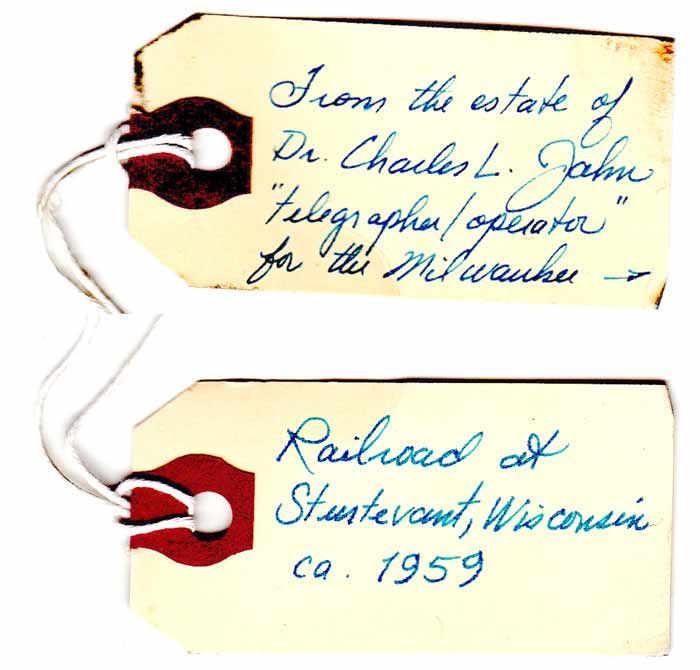 From the estate of
Dr. Charles L. Jahn
"telegrapher/operator"
for the Milwaukee →
Railroad at
Sturtevant, Wisconsin
ca. 1959